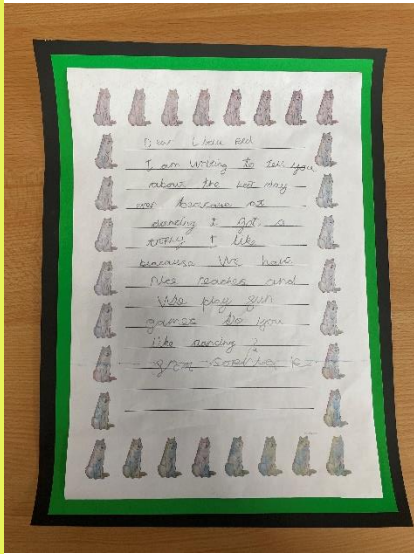 Dear
I am writing to tell you
about the best day
ever because at
dancing I got a
trophy I like
because We have
Nice teachers and
We play fun
games Do you
like dancing ?
from